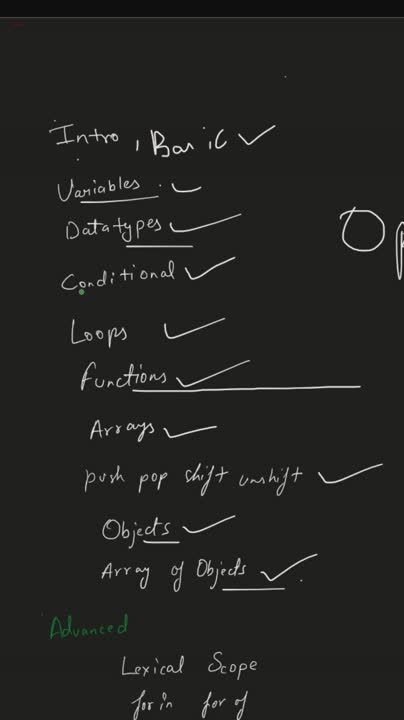 Intro, Basic
Variables
Datatypes
Conditional
Loops
Functions
Arrays
push pop shift unshift
Objects
Array of Objects
Advanced
Lexical Scope
for in for of